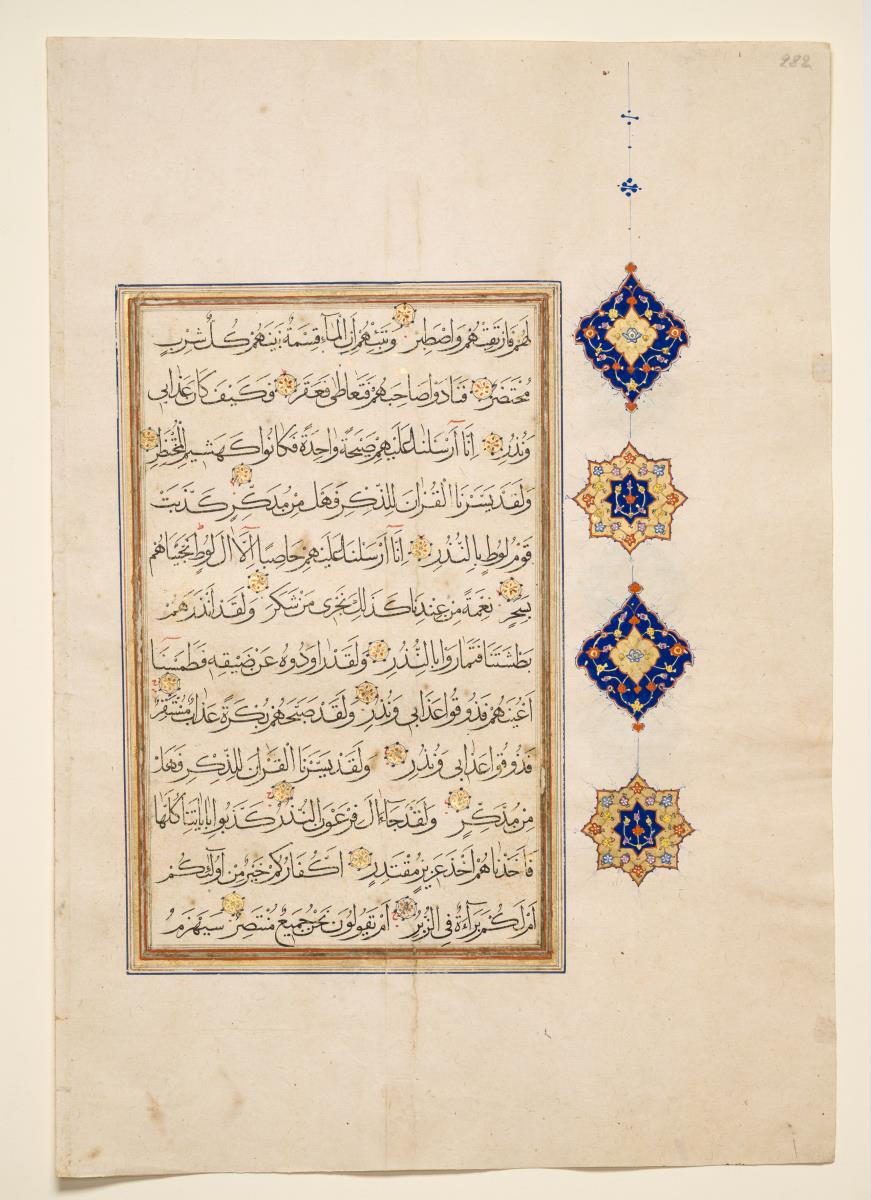 282
لَهُمْ فَارْتَقِبْهُمْ وَاصْطَبِرْ وَنَبِّئْهُمْ اَنَّ الْمَاءَ قِسْمَةٌ بَيْنَهُمْ كُلُّ شِرْبٍ
مُحْتَضَرٌ فَنَادَوْا صَاحِبَهُمْ فَتَعَاطٰى فَعَقَرَ فَكَيْفَ كَانَ عَذَابِى
وَنُذُرِ اِنَّا اَرْسَلْنَا عَلَيْهِمْ صَيْحَةً وَاحِدَةً فَكَانُوا كَهَشِيمِ الْمُحْتَظِرِ
وَلَقَدْ يَسَّرْنَا الْقُرْاٰنَ لِلذِّكْرِ فَهَلْ مِنْ مُدَّكِرٍ كَذَّبَتْ
قَوْمُ لُوطٍ بِالنُّذُرِ اِنَّا اَرْسَلْنَا عَلَيْهِمْ حَاصِبًا اِلَّا اٰلَ لُوطٍ نَجَّيْنَاهُمْ
بِسَحَرٍ نِعْمَةً مِنْ عِنْدِنَا كَذٰلِكَ نَجْزِى مَنْ شَكَرَ وَلَقَدْ اَنْذَرَهُمْ
بَطْشَتَنَا فَتَمَارَوْا بِالنُّذُرِ وَلَقَدْ رَاوَدُوهُ عَنْ ضَيْفِهِ فَطَمَسْنَا
اَعْيُنَهُمْ فَذُوقُوا عَذَابِى وَنُذُرِ وَلَقَدْ صَبَّحَهُمْ بُكْرَةً عَذَابٌ مُسْتَقِرٌّ
فَذُوقُوا عَذَابِى وَنُذُرِ وَلَقَدْ يَسَّرْنَا الْقُرْاٰنَ لِلذِّكْرِ فَهَلْ
مِنْ مُدَّكِرٍ وَلَقَدْ جَاءَ اٰلَ فِرْعَوْنَ النُّذُرُ كَذَّبُوا بِاٰيَاتِنَا كُلِّهَا
فَاَخَذْنَاهُمْ اَخْذَ عَزِيزٍ مُقْتَدِرٍ اَكُفَّارُكُمْ خَيْرٌ مِنْ اُولٰئِكُمْ
اَمْ لَكُمْ بَرَاءَةٌ فِى الزُّبُرِ اَمْ يَقُولُونَ نَحْنُ جَمِيعٌ مُنْتَصِرٌ سَيُهْزَمُ